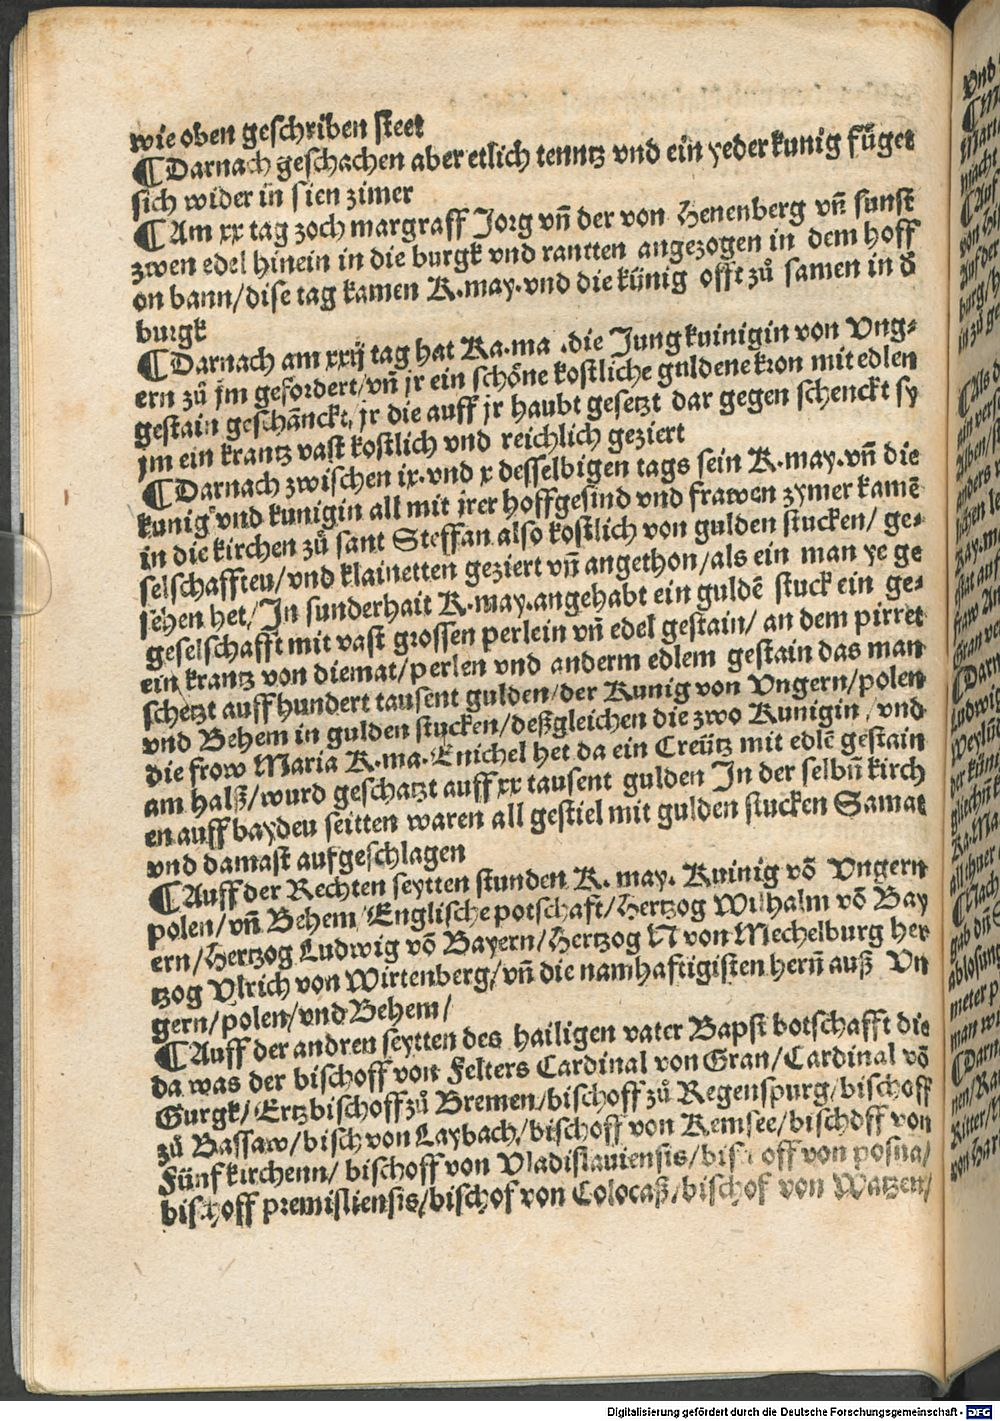 wie oben geschriben steet
¶Darnach geschachen aber etlich tenntz vnd ein yeder kunig fůget
sich wider in sien zimer
¶Am xx tag zoch margraff Jorg vñ der von Henenberg vñ sunst
zwen edel hinein in die burgk vnd rantten angezogen in dem hoff
on bann/dise tag kamen K.may.vnd die künig offt zů samen in d̕
burgk
¶Darnach am xxij tag hat Ka.ma .die Jung kuinigin von Vng⸗
ern zů jm gefordert/vñ jr ein schöne kostliche guldene kron mit edlen
gestain geschānckt, jr die auff jr haubt gesetzt dar gegen schenckt sy
jm ein krantz vast kostlich vnd reichlich geziert
¶Darnach zwischen ix.vnd x desselbigen tags sein K.may.vñ die
kunig vnd kunigin all mit jrer hoffgesind vnd frawen zymer kamē
in die kirchen zů sant Steffan also kostlich von gulden stucken/ ge⸗
selschafften/vnd klainetten geziert vñ angethon/als ein man ye ge
sehen het/Jn sunderhait K.may.angehabt ein guldē stuck ein ge⸗
geselschafft mit vast grossen perlein vñ edel gestain/ an dem pirret
ein krantz von diemat/perlen vnd anderm edlem gestain das man
schetzt auff hundert tausent gulden/der Kunig von Vngern/polen
vnd Behem in gulden stucken/deßgleichen die zwo Kunigin /vnd
die frow Maria K.ma.Enichel het da ein Creütz mit edlē gestain
am halß/wurd geschatzt auff xx tausent gulden Jn der selbñ kirch
en auff baydeu seitten waren all gestiel mit gulden stucken Samat
vnd damast aufgeschlagen
¶Auff der Rechten seytten stunden K. may. Kuinig vō Vngern
polen/vñ Behem/Englische potschaft/Hertzog Wilhalm vō Bay
ern/Hertzog Ludwig vō Bayern/Hertzog N von Mechelburg her
tzog Vlrich von Wirtenberg/vñ die namhaftigisten herñ auß Vn
gern/polen/vnd Behem/
¶Auff der andren seytten des hailigen vater Bapst botschafft die
da was der bischoff von Felters Cardinal von Gran/Cardinal vō
Gurgk/Ertzbischoff zů Bremen/bischoff zů Regenspurg/bischoff
zů Bassaw/bisch von Laybach/bischoff von Kemsee/bischoff von
Fünfkirchenn/ bischoff von Vladislauiensis/bischoff von posna/
bischoff premisliensis/bischof von Colocaß/bischof von Watzen/
Digitalisierung gefördert durch die Deutsche Forschungsgemeinschaft - DFG